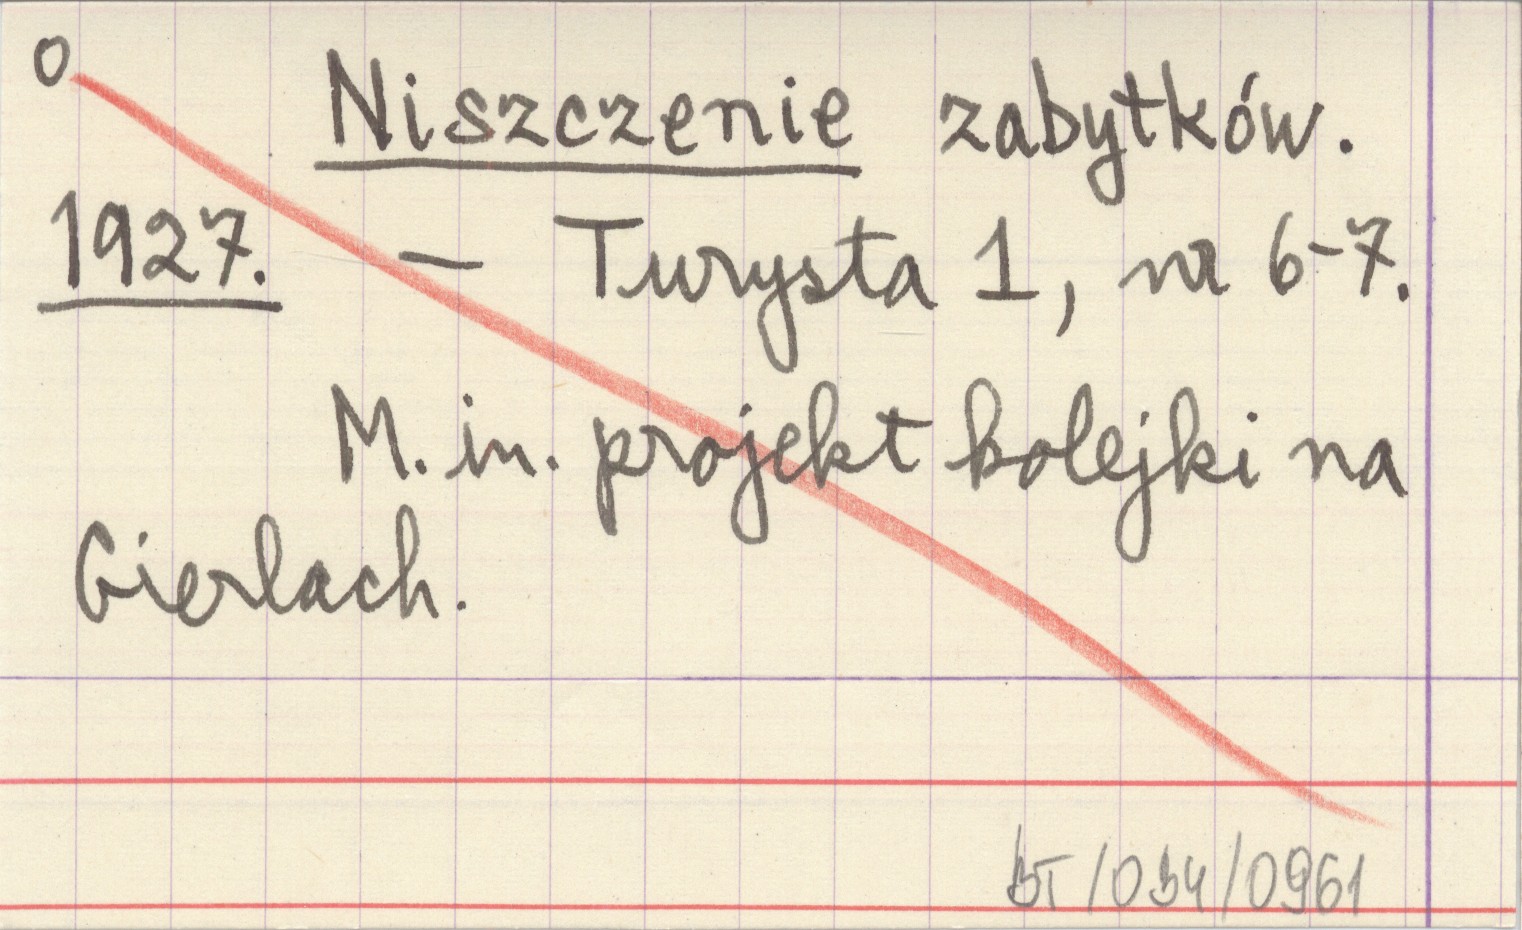 O
Niszczenie zabytków.
1927. – Turysta 1, nr 6-7.
M. in. projekt kolejki na
Gierlach.
BT/034/0961